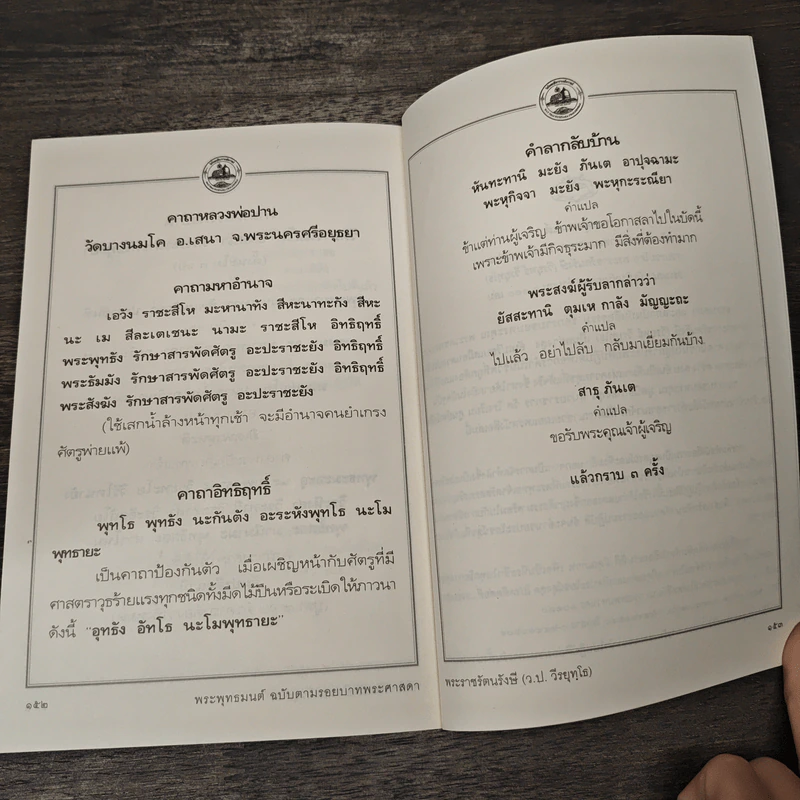 คาถาหลวงพ่อปาน
วัดบางนมโค อ.เสนา จ.พระนครศรีอยุธยา
คาถามหาอำนาจ
เอวัง ราชะสีโห มะหานาทัง สีหะนาทะกัง สีหะ
นะ เม สีละเตเชนะ นามะ ราชะสีโห อิทธิฤทธิ์
พระพุทธัง รักษาสารพัดศัตรู อะปะราชะยัง อิทธิฤทธิ์
พระธัมมัง รักษาสารพัดศัตรู อะปะราชะยัง อิทธิฤทธิ์
พระสังฆัง รักษาสารพัดศัตรู อะปะราชะยัง
(ใช้เสกน้ำล้างหน้าทุกเช้า จะมีอำนาจคนยำเกรง
ศัตรูพ่ายแพ้)
คาถาอิทธิฤทธิ์
พุทโธ พุทธัง นะกันตัง อะระหังพุทโธ นะโม
พุทธายะ
เป็นคาถาป้องกันตัว เมื่อเผชิญหน้ากับศัตรูที่มี
ศาสตราวุธร้ายแรงทุกชนิดทั้งมีดไม้ปืนหรือระเบิดให้ภาวนา
ดังนี้ "อุทธัง อัทโธ นะโมพุทธายะ"
๑๕๒
พระพุทธมนต์ ฉบับตามรอยบาทพระศาสดา
คำลากลับบ้าน
หันทะทานิ มะยัง ภันเต อาปุจฉามะ
พะหุกิจจา มะยัง พะหุกะระณียา
คำแปล
ข้าแต่ท่านผู้เจริญ ข้าพเจ้าขอโอกาสลาไปในบัดนี้
เพราะข้าพเจ้ามีกิจธุระมาก มีสิ่งที่ต้องทำมาก
พระสงฆ์ผู้รับลากล่าวว่า
ยัสสะทานิ ตุมเห กาลัง มัญญะถะ
คำแปล
ไปแล้ว อย่าไปลับ กลับมาเยี่ยมกันบ้าง
สาธุ ภันเต
คำแปล
ขอรับพระคุณเจ้าผู้เจริญ
แล้วกราบ ๓ ครั้ง
๑๕๓
พระราชรัตนรังษี (ว.ป. วีรยุทฺโธ)